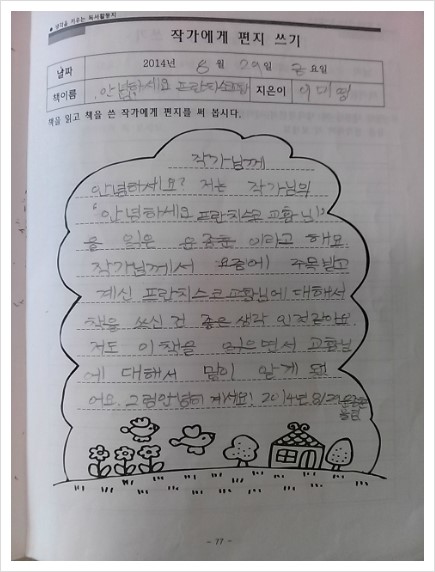 생각을 키우는 독서활동지
작가에게 편지 쓰기
날짜 2014년 8 월 29일 금요일
책이름 안녕하세요 프란치스코 지은이 이미영
책을 읽고 책을 쓴 작가에게 편지를 써 봅시다.
작가님께
안녕하세요? 저는 작가님의
"안녕하세요 프란치스코 교황님"
을 읽은 이라고 해요.
작가님께서 요즘에 주목받고
계신 프란치스코 교황님에 대해서
책을 쓰신 건 좋은 생각 인것같아요.
저도 이 책을 읽으면서 교황님
에 대해서 많이 알게 됐
어요. 그럼안녕히 계세요. 2014년.8/29
올림
- 77 -